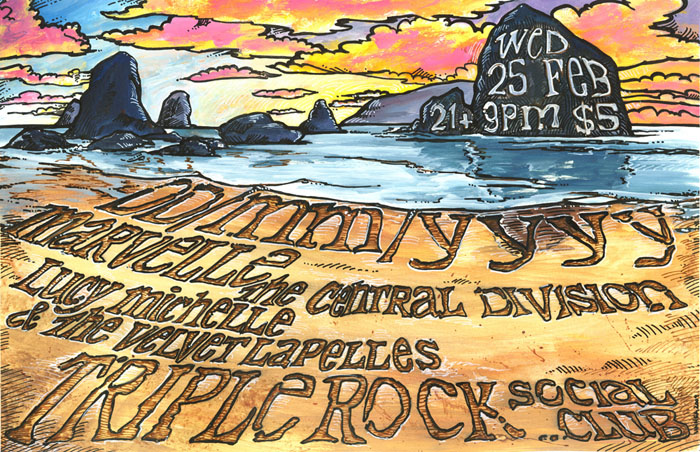 WED
25 FEB
21+ 9pm $5
DD/mm/yyyy
marvelle
the CENTRAL DIVISION
LUCY michelle
& the velvet Lapelles
TRIPLE ROCK SOCIAL
CLUB